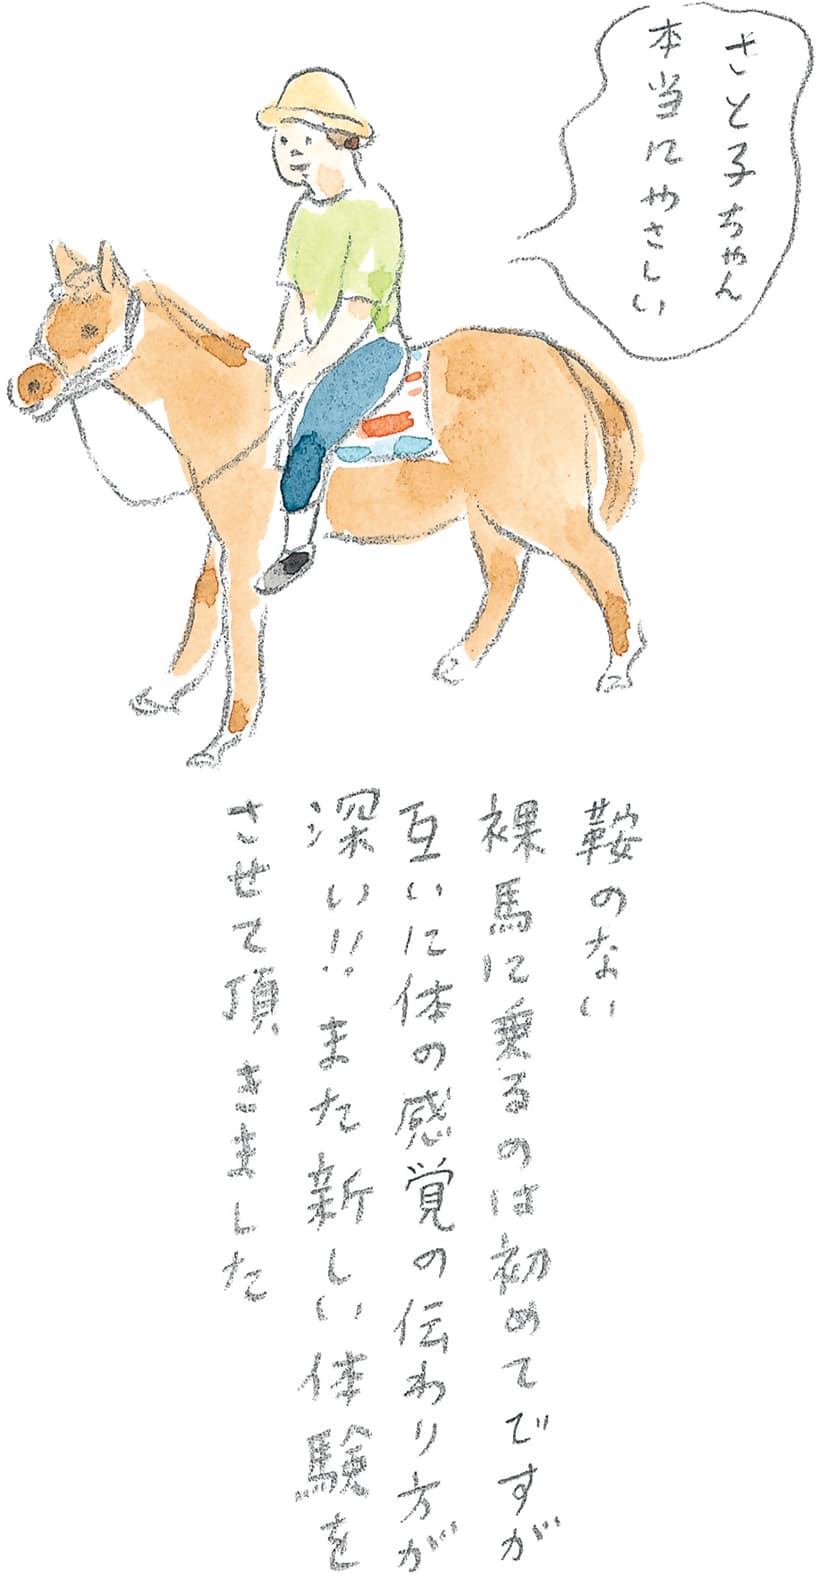 さと子ちゃん
本当にやさしい
鞍のない
裸馬に乗るのは初めてですが
互いに体の感覚の伝わり方が
深い!!また新しい体験を
させて頂きました